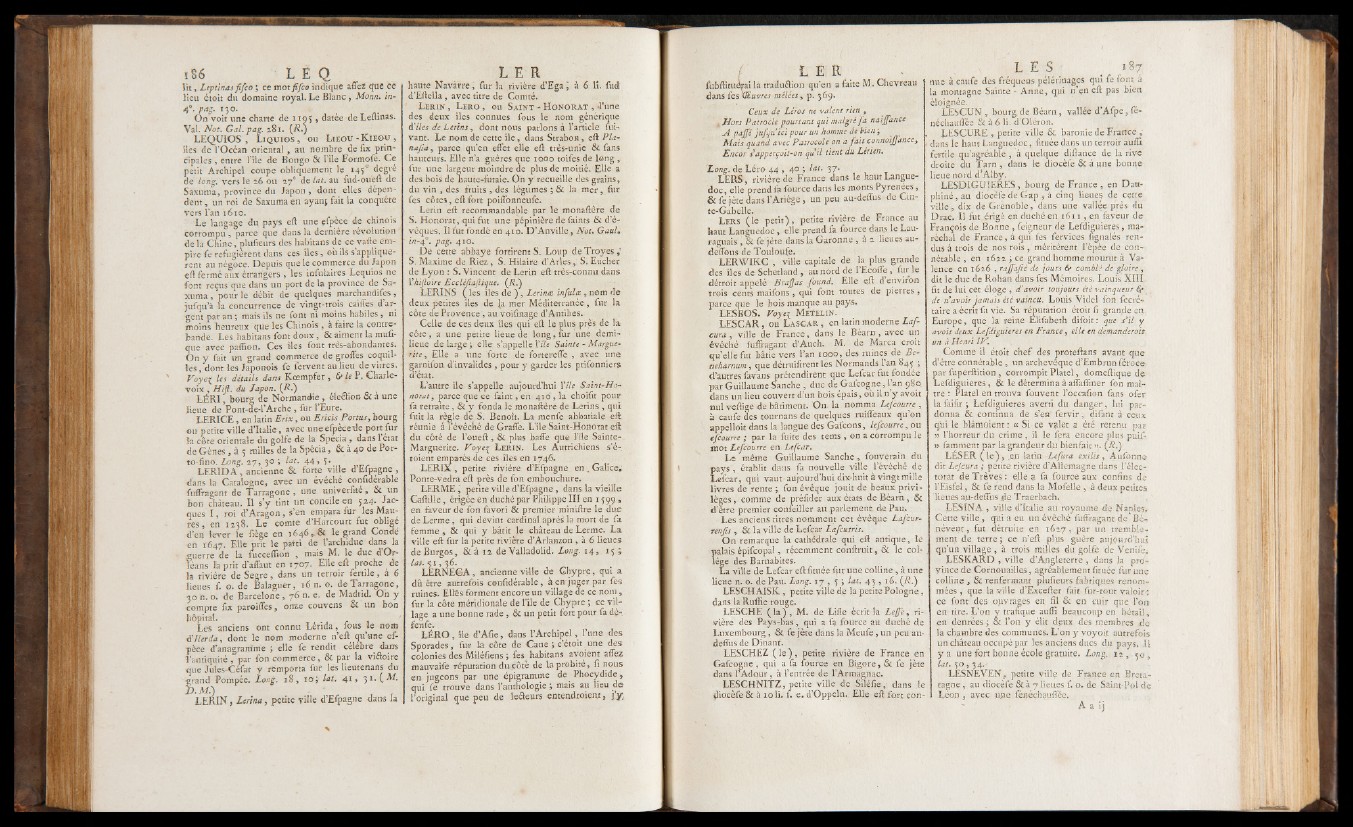 186 L E Q L E R
lit, Leptinas fisco ; ce mot fisco indique assez que ce
lieu étoit du domaine royal. Le Blanc, Monn. in-
4°. pag. 130.
On voit une charte de 1193, datée de Lestinas.
Val. Not. Gal. pag. 281. (R.)
LEQUIOS, LIQUIOS, ou LIEOU-KIEOU,
îles de l'Océan oriental, au nombre de six prin-
cipales, entre l'île de Bongo & l'île Formose. Ce
petit Archipel coupe obliquement le 145° degré
de long. vers le 26 ou 27° de lat. au sud-ouest de
Saxuma, province du Japon, dont elles dépen-
dent, un roi de Saxuma en ayant fait la conquête
vers l'an 1610.
Le langage du pays est une espèce de chinois
corrompu, parce que dans la dernière révolution
de la Chine, plusieurs des habitans de ce vaste em-
pire se réfugièrent dans ces îles, où ils s'applique-
rent au négoce. Depuis que le commerce du Japon
est fermé aux étrangers, les insulaires Lequios ne
sont reçus que dans un port de la province de Sa-
xuma, pour le débit de quelques marchandises,
jusqu'à la concurrence de vingt-trois caisses d'ar-
gent par an ; mais ils ne sont ni moins habiles, ni
moins heureux que les Chinois, à faire la contre-
bande. Les habitans sont doux, & aiment la musi-
que avec passion. Ces îles sont très-abondantes.
On y fait un grand commerce de grosses coquil-
les, dont les Japonois se servent au lieu de vitres.
Voyez les détails dans Kœmpfer, & le P. Charle-
voix, Hist. du Japon. (R.)
LÉRI, bourg de Normandie, élection & à une
lieue de Pont-de-l'Arche, sur l'Eure.
LERICE, en latin Erix, ou Ericis Portus, bourg
ou petite ville d'Italie, avec une espèce de port sur
la côte orientale du golfe de la Spécia, dans l'état
de Gènes, à 5 milles de la Spécia, & à 40 de Por-
to-fino. Long. 27, 30 ; lat. 44, 5.
LERIDA, ancienne & forte ville d'Espagne,
dans la Catalogne, avec un évêché considérable
suffragant de Tarragone, une université, & un
bon château. Il s'y tint un concile en 524. Jac-
ques I, roi d'Aragon, s'en empara sur les Mau-
res, en 1238. Le comte d'Harcourt fut obligé
d'en lever le siège en 1646, & le grand Condé
en 1647. Elle prit le parti de l'archiduc dans la
guerre de la succession, mais M. le duc d'Or-
léans la prit d'assaut en 1707. Elle est proche de
la rivière de Segre, dans un terroir fertile, à 6
lieues s. o. de Balaguer, 16 n. o. de Tarragone,
30 n. o. de Barcelone, 76 n. e. de Madrid. On y
compte six paroisses, onze couvens & un bon
hôpital.
Les anciens ont connu Lérida, sous le nom
d'Ilerda, dont le nom moderne n'est qu'une es-
pèce d'anagramme ; elle se rendit célèbre dans
l'antiquité, par son commerce, & par la victoire
que Jules-César y remporta sur les lieutenans du
grand Pompée. Long. 18, 10 ; lat. 41, 31. (M.
D. M.)
LERIN, Lerina, petite ville d'Espagne dans la
haute Navarre, sur la rivière d'Ega, à 6 li. sud
d'Estella, avec titre de Comté.
LERIN, LERO, ou SAINT-HONORAT, d'une
des deux îles connues sous le nom générique
d'îles de Lerins, dont nous parlons à l'article sui-
vant. Le nom de cette île, dans Strabon, est Pla-
nasia, parce qu'en effet elle est très-unie & sans
hauteurs. Elle n'a guères que 1000 toises de long,
sur une largeur moindre de plus de moitié. Elle a
des bois de haute-futaie. On y recueille des grains,
du vin, des fruits, des légumes ; & la mer, sur
ses côtes, est fort poissonneuse.
Lerin est recommandable par le monastère de
S. Honorat, qui fut une pépinière de saints & d'é-
vêques. Il fut fondé en 410. D'Anville, Not. Gaul.
in-4°. pag. 410.
De cette abbaye sortirent S. Loup de Troyes,
S. Maxime de Riez, S. Hilaire d'Arles, S. Eucher
de Lyon : S. Vincent de Lerin est très-connu dans
l'histoire Ecclésiastique. (R.)
LERINS (les îles de), Lerinæ insulæ, nom de
deux petites îles de la mer Méditerranée, sur la
côte de Provence, au voisinage d'Antibes.
Celle de ces deux îles qui est le plus près de la
côte, a une petite lieue de long, sur une demi-
lieue de large ; elle s'appelle l'île Sainte-Margue-
rite. Elle a une sorte de forteresse, avec une
garnison d'invalides, pour y garder les prisonniers
d'état.
L'autre île s'appelle aujourd'hui l'île Saint-Ho-
norat, parce que ce saint, en 410, la choisit pour
sa retraite, & y fonda le monastère de Lerins, qui
suit la règle de S. Benoît. La mense abbatiale est
réunie à l'évêché de Grasse. L'île Saint-Honorat est
du côté de l'ouest, & plus basse que l'île Sainte-
Marguerite. Voyez LERIN. Les Autrichiens s'é-
toient emparés de ces îles en 1746.
LERIX, petite rivière d'Espagne en Galice.
Ponte-vedra est près de son embouchure.
LERME, petite ville d'Espagne, dans la vieille
Castille, érigée en duché par Philippe III en 1599,
en faveur de son favori & premier ministre le duc
de Lerme, qui devint cardinal après la mort de sa
femme, & qui y bâtit le château de Lerme. La
ville est sur la petite rivière d'Arlanzon, à 6 lieues
de Burgos, & à 12 de Valladolid. Long. 14, 15 ;
lat. 51, 36.
LERNECA, ancienne ville de Chypre, qui a
dû être autrefois considérable, à en juger par ses
ruines. Elles forment encore un village de ce nom,
sur la côte méridionale de l'île de Chypre ; ce vil-
lage a une bonne rade, & un petit fort pour sa dé-
fense.
LÉRO, île d'Asie, dans l'Archipel, l'une des
Sporades, sur la côte de Cane ; c'étoit une des
colonies des Milésiens ; ses habitans avoient assez
mauvaise réputation du côté de la probité, si nous
en jugeons par une épigramme de Phocydide,
qui se trouve dans l'anthologie ; mais au lieu de
l'original que peu de lecteurs entendroient, j'y
L E R L E S 187
substituerai la traduction qu'en a faite M. Chevreau
dans ses Œuvres mêlées, p. 369.
Ceux de Léros ne valent rien,
Hors Patrocle pourtant qui malgré sa naissance
A passé jusqu'ici pour un homme de bien ;
Mais quand avec Patrocole on a fait connoissance,
Encor s'apperçoit-on qu'il tient du Lérien.
Long. de Léro 44, 40 ; lat. 37.
LERS, rivière de France dans le haut Langue-
doc, elle prend sa source dans les monts Pyrenées,
& se jète dans l'Ariège, un peu au-dessus de Cin-
te-Gabelle.
LERS (le petit), petite rivière de France au
haut Languedoc, elle prend sa source dans le Lau-
raguais, & se jète dans la Garonne, à 2 lieues au-
dessous de Toulouse.
LERWICK, ville capitale de la plus grande
des îles de Scherland, au nord de l'Ecosse, sur le
détroit appelé Brassas sound. Elle est d'environ
trois cens maisons, qui sont toutes de pierres,
parce que le bois manque au pays.
LESBOS. Voyez METELIN.
LESCAR, ou LASCAR, en latin moderne Las-
cura, ville de France, dans le Béarn, avec un
évêché suffragant d'Auch. M. de Marca croit
qu'elle fut bâtie vers l'an 1000, des ruines de Be-
neharnum, que détruisirent les Normands l'an 845 ;
d'autres savans prétendirent que Lescar fut fondée
par Guillaume Sanche, duc de Gascogne, l'an 980
dans un lieu couvert d'un bois épais, où il n'y avoit
nul vestige de bâtiment. On la nomma Lescourre,
à cause des tournans de quelques ruisseaux qu'on
appelloit dans la langue des Gascons, lescourre, ou
escourre ; par la suite des tems, on a corrompu le
mot Lescourre en Lescar.
Le même Guillaume Sanche, souverain du
pays, établit dans sa nouvelle ville l'évêché de
Lescar, qui vaut aujourd'hui dix-huit à vingt mille
livres de rente ; son évêque jouit de beaux privi-
lèges, comme de présider aux états de Béarn, &
d'être premier conseiller au parlement de Pau.
Les anciens titres nomment cet évêque Lascur-
rensis, & la ville de Lescar Lascurris.
On remarque la cathédrale qui est antique, le
palais épiscopal, récemment construit, & le col-
lège des Barnabites.
La ville de Lescar est située sur une colline, à une
lieue n. o. de Pau. Long. 17, 5 ; lat. 43, 16. (R.)
LESCHAISK, petite ville de la petite Pologne,
dans la Russie rouge.
LESCHE (la), M. de Lisle écrit la Lesse, ri-
vière des Pays-bas, qui a sa source au duché de
Luxembourg, & se jète dans la Meuse, un peu au-
dessus de Dinant.
LESCHEZ (le), petite rivière de France en
Gascogne, qui a sa source en Bigore, & se jète
dans l'Adour, à l'entrée de l'Armagnac.
LESCHNITZ, petite ville de Silésie, dans le
diocèse & à 10 li. s. e. d'Oppeln. Elle est fort con-
nue à cause des fréquens pélérinages qui se font à
la montagne Sainte-Anne, qui n'en est pas bien
éloignée.
LESCUN, bourg de Béarn, vallée d'Aspe, sé-
néchaussée & à 6 li. d'Oleron.
LESCURE, petite ville & baronie de France,
dans le haut Languedoc, située dans un terroir aussi
fertile qu'agréable, à quelque distance de la rive
droite du Tarn, dans le diocèse & à une bonne
lieue nord d'Alby.
LESDIGUIERES, bourg de France, en Dau-
phiné, au diocèse de Gap, à cinq lieues de cette
ville, dix de Grenoble, dans une vallée près du
Drac. Il fut érigé en duché en 1611, en faveur de
François de Bonne, seigneur de Lesdiguières, ma-
réchal de France, à qui ses services signalés ren-
dus à trois de nos rois, méritèrent l'épée de con-
nétable, en 1622 ; ce grand homme mourut à Va-
lence en 1626, rassasié de jours & comblé de gloire,
dit le duc de Rohan dans ses Mémoires. Louis XIII
fit de lui cet éloge, d'avoir toujours été vainqueur &
de n'avoir jamais été vaincu. Louis Videl son secré-
taire a écrit sa vie. Sa réputation étoit si grande en
Europe, que la reine Elisabeth disoit : que s'il y
avoit deux Lesdiguieres en France, elle en demanderoit
un à Henri IV.
Comme il étoit chef des protestans avant que
d'être connétable, un archevêque d'Embrun féroce
par superstition, corrompit Platel, domestique de
Lesdiguieres, & le détermina à assassiner son maî-
tre : Platel en trouva souvent l'occasion sans oser
la saisir ; Lesdiguieres averti du danger, lui par-
donna & continua de s'en servir, disant à ceux
qui le blâmoient : « Si ce valet a été retenu par
» l'horreur du crime, il le sera encore plus puis-
» samment par la grandeur du bienfait ». (R.)
LÉSER (le), en latin Lesura exilis, Ausonne
dit Lesura ; petite rivière d'Allemagne dans l'élec-
torat de Trèves : elle a sa source aux confins de
l'Eisfel, & se rend dans la Moselle, à deux petites
lieues au-dessus de Traerbach.
LESINA, ville d'Italie au royaume de Naples.
Cette ville, qui a eu un évêché suffragant de Bé-
névent, fut détruite en 1627, par un tremble-
ment de terre ; ce n'est plus guère aujourd'hui
qu'un village, à trois milles du golfe de Venise.
LESKARD, ville d'Angleterre, dans la pro-
vince de Cornouailles, agréablement située sur une
colline, & renfermant plusieurs fabriques renom-
mées, que la ville d'Excester fait sur-tout valoir :
ce sont des ouvrages en fil & en cuir que l'on
en tire. L'on y trafique aussi beaucoup en bétail,
en denrées ; & l'on y élit deux des membres de
la chambre des communes. L'on y voyoit autrefois
un château occupé par les anciens ducs du pays. Il
y a une fort bonne école gratuite. Long. 12, 50,
lat. 50, 34.
LESNEVEN, petite ville de France en Breta-
tagne, au diocèse & à 7 lieues s. o. de Saint Pol de
Léon, avec une sénéchaussée.
A a ij